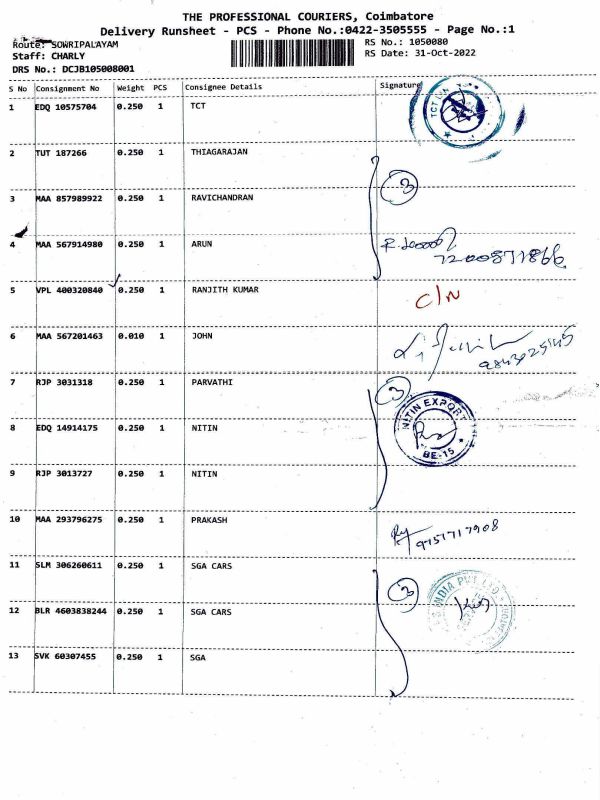 THE PROFESSIONAL COURIERS, Coimbatore
Delivery Runsheet - PCS - Phone No.:0422-3505555 - Page No.:1
Route: SOWRIPALAYAM
RS No.: 1050080
Staff: CHARLY
RS Date: 31-Oct-2022
DRS No.: DCJB105008001
S No Consignment No Weight PCS Consignee Details Signature
1 EDQ 10575704 0.250 1 TCT
TCT
2 TUT 187266 0.250 1 THIAGARAJAN
3
3 MAA 857989922 0.250 1 RAVICHANDRAN
4 MAA 567914980 0.250 1 ARUN
7200871866
5 VPL 400320840 0.250 1 RANJITH KUMAR C/N
6 MAA 567201463 0.010 1 JOHN
7 RJP 3031318 0.250 1 PARVATHI
3
8 EDQ 14914175 0.250 1 NITIN
NITIN EXPORT
BE-15
9 RJP 3013727 0.250 1 NITIN
10 MAA 293796275 0.250 1 PRAKASH
9751717908
11 SLM 306260611 0.250 1 SGA CARS
3
INDIA PVT LTD
12 BLR 4603838244 0.250 1 SGA CARS
13 SVK 60307455 0.250 1 SGA